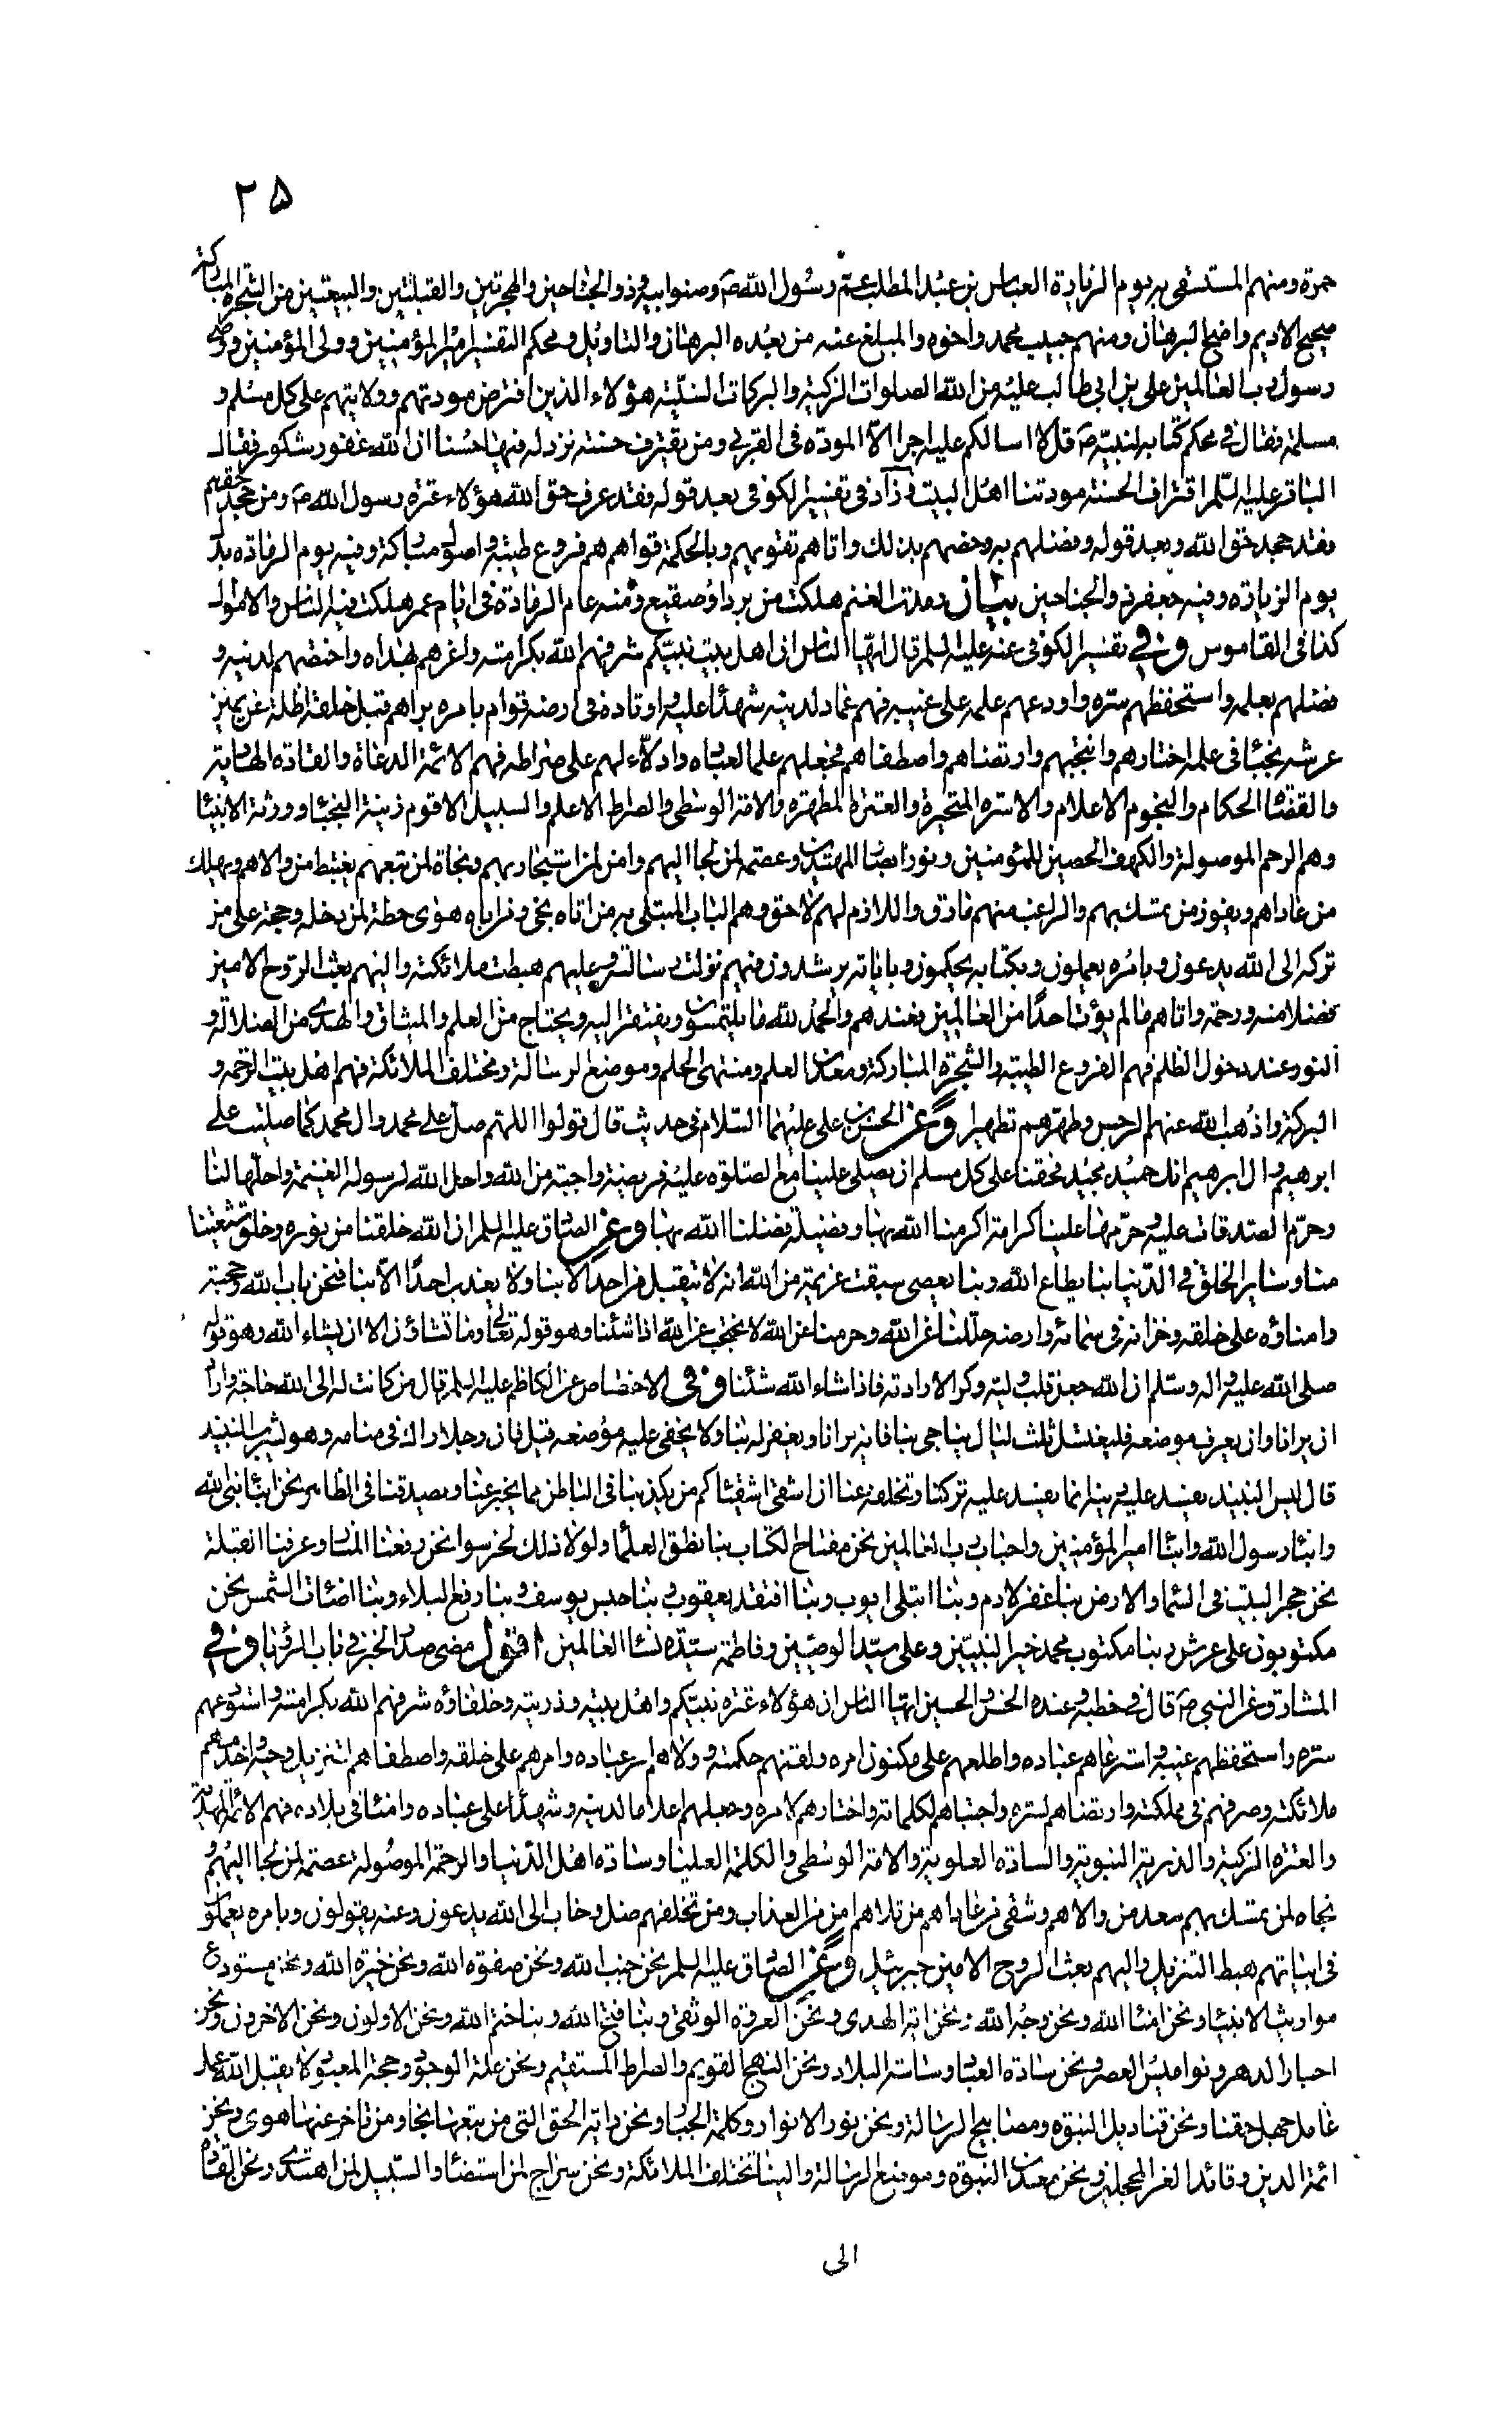 ٢٥
حمزة ومنهم المستسقى به يوم الرمادة العباس بن عبد المطلب عم رسول الله ص وصنو ابيه و ذو الجناحين والهجرتين والقبلتين والبيعتين من الشجرة المباركة
صحيح الاديم واضح البرهان ومنهم حبيب محمد واخوه والمبلغ عنه من بعده البرهان والتاويل ومحكم التفسير امير المؤمنين وولى المؤمنين ووصى
رسول رب العالمين على بن ابى طالب عليه من الله الصلوات الزكية والبركات السنية هؤلاء الذين افترض مودتهم وولايتهم على كل مسلم و
مسلمة فقال فى محكم كتابه لنبيه ص قل لا اسالكم عليه اجرا الا المودة فى القربى ومن يقترف حسنة نزد له فيها حسنا ان الله غفور شكور فقال
الباقر عليه السلم اقتراف الحسنة مودتنا اهل البيت وزاد فى تفسير الكوفى بعد قوله فقد عرف حق الله هؤلاء عترة رسول الله ص ومن جحد حقهم
فقد جحد حق الله وبعد قوله وفضلهم به وخصهم بذلك واتاهم تقويهم وبالحكمة قواهم هم فروع طيبة واصول مباركة وفيه يوم الرمادة بدل
يوم الزيادة وفيه جعفر ذو الجناحين بيان رمدت الغنم هلكت من برد او صقيع ومنه عام الرمادة فى ايام عمر هلكت فيه الناس والاموال
كذا فى القاموس وفى تفسير الكوفى عنه عليه السلم قال ايها الناس ان اهل بيت نبيكم شرفهم الله بكرامته واعزهم بهداه واختصهم لدينه و
فضلهم بعلمه واستحفظهم سره واودعهم علمه على غيبه فهم عماد لدينه شهداء عليه واوتاد فى ارضه قوام بامره براهم قبل خلقه اظلة عن يمين
عرشه نجباء فى علمه اختارهم وانتجبهم وارتضاهم واصطفاهم فجعلهم علما لعباده وادلاء لهم على صراطه فهم الائمة الدعاة والقادة الهداية
والقضاة الحكام والنجوم الاعلام والاسرة المتخيرة والعترة المطهرة والامة الوسطى والصراط الاعلم والسبيل الاقوم زينة النجباء وورثة الانبياء
وهم الرحم الموصولة والكهف الحصين للمؤمنين ونور ابصار المهتدين وعصمة لمن لجا اليهم وامن لمن استجار بهم ونجاة لمن تبعهم يغتبط من والاهم ويهلك
من عاداهم ويفوز من تمسك بهم والراغب عنهم مارق واللازم لهم لاحق وهم الباب المبتلى به من اتاه نجى ومن اباه هوى حطة لمن دخله وحجة على من
تركه الى الله يدعون وبامره يعملون وبكتابه يحكمون وباياته يرشدون فيهم نزلت رسالته وعليهم هبطت ملائكته واليهم بعث الروح الامين
فضلا منه ورحمة واتاهم ما لم يؤت احدا من العالمين فعندهم والحمد لله ما يلتمسون ويفتقر اليه ويحتاج من العلم والميثاق والهدى من الضلالة و
النور عند دخول الظلم فهم الفروع الطيبة والشجرة المباركة ومعدن العلم ومنتهى الحلم وموضع الرسالة ومختلف الملائكة فهم اهل بيت الرحمة و
البركة واذهب الله عنهم الرجس وطهرهم تطهيرا وعن الحسن بن على عليهما السلام فى حديث قال قولوا اللهم صل على محمد وال محمد كما صليت على
ابرهيم وال ابرهيم انك حميد مجيد فحقنا على كل مسلم ان يصلى علينا مع الصلوة عليه فريضة واجبة من الله واحل الله لرسوله الغنيمة واحلها لنا
وحرم الصدقات عليه وحرمها علينا كرامة اكرمنا الله بها وفضيلة فضلنا الله بها وعن الصادق عليه السلم ان الله خلقنا من نوره وخلق شيعتنا
منا وساير الخلق فى الدنيا بنا يطاع الله وبنا يعصى سبقت عزيمة من الله انه لا يتقبل من احد الا بنا ولا يعذب احدا الا بنا فنحن باب الله وحجته
وامناؤه على خلقه وخزانه فى سمائه وارضه حللنا عن الله وحرمنا عن الله لا نحتجب عن الله اذا شئنا وهو قوله تعالى وما تشاؤن الا ان يشاء الله وهو قوله
صلى الله عليه واله وسلم ان الله جعل قلب وليه وكر الارادته فاذا شاء الله شئنا وفى الاختصاص عن الكاظم عليه السلم قال من كانت له الى الله حاجة واراد
ان يرانا وان يعرف موضعه فليغتسل ثلث ليال يناجى بنا فانه يرانا ويغفر له بنا ولا يخفى عليه موضعه قيل فان رجلا راك فى منامه وهو يشرب النبيذ
قال ليس النبيذ يفسد عليه دينه انما يفسد عليه تركنا وتخلفه عنا ان اشقى اشقيائكم من يكذبنا فى الباطن بما يخبر عنا ويصدقنا فى الظاهر نحن ابناء نبى الله
وابناء رسول الله وابناء امير المؤمنين واحباب رب العالمين نحن مفتاح الكتاب بنا نطق العلماء ولولا ذلك لخرسوا نحن رفعنا المنار وعرفنا القبلة
نحن حجر البيت فى السماء والارض بنا غفر لادم وبنا ابتلى ايوب وبنا افتقد يعقوب وبنا حبس يوسف وبنا رفع البلاء وبنا اضائت الشمس نحن
مكتوبون على عرش ربنا مكتوب محمد خير النبيين وعلى سيد الوصيين وفاطمة سيدة نساء العالمين اقول مضى صدر الخبر فى باب الرؤيا وفى
المشارق عن النبى ص قال فى خطبة وعنده الحسن والحسين ايها الناس ان هؤلاء عترة نبيكم واهل بيته وذريته وخلفاؤه شرفهم الله بكرامته واستودعهم
سره واستحفظهم غيبه واسترعاهم عباده واطلعهم على مكنون امره ولقنهم حكمته وولاهم امر عباده وامرهم على خلقه واصطفاهم لتنزيل وحيه واخدمهم
ملائكته وصرفهم فى مملكته وارتضاهم لسره واجتباهم لكلماته واختارهم لامره وجعلهم اعلاما لدينه وشهداء على عباده وامناء فى بلاده فهم الائمة المهدية
والعترة الزكية والذرية النبوية والسادة العلوية والامة الوسطى والكلمة العليا وسادة اهل الدنيا والرحمة الموصولة عصمة لمن لجا اليهم و
نجاة لمن تمسك بهم سعد من والاهم وشقى من عاداهم من تلاهم امن من العذاب ومن تخلفهم ضل وخاب الى الله يدعون وعنه يقولون وبامره يعملون
فى ابياتهم هبط التنزيل واليهم بعث الروح الامين جبرئيل وعن الصادق عليه السلم نحن جنب الله ونحن صفوة الله ونحن خيرة الله ونحن مستودع
مواريث الانبياء ونحن امناء الله ونحن وجه الله ونحن اية الهدى ونحن العروة الوثقى وبنا فتح الله وبنا ختم الله ونحن الاولون ونحن الاخرون ونحن
اخيار الدهر ونواميس العصر ونحن سادة العباد وساسة البلاد ونحن النهج القويم والصراط المستقيم ونحن علة الوجود وحجة المعبود لا يقبل الله عمل
عامل جهل حقنا ونحن قناديل النبوة ومصابيح الرسالة ونحن نور الانوار وكلمة الجبار ونحن راية الحق التى من تبعها نجا ومن تاخر عنها هوى ونحن
ائمة الدين وقائد الغر المحجلين ونحن معدن النبوة وموضع الرسالة والينا تختلف الملائكة ونحن سراج لمن استضاء والسبيل لمن اهتدى ونحن القادة
الى